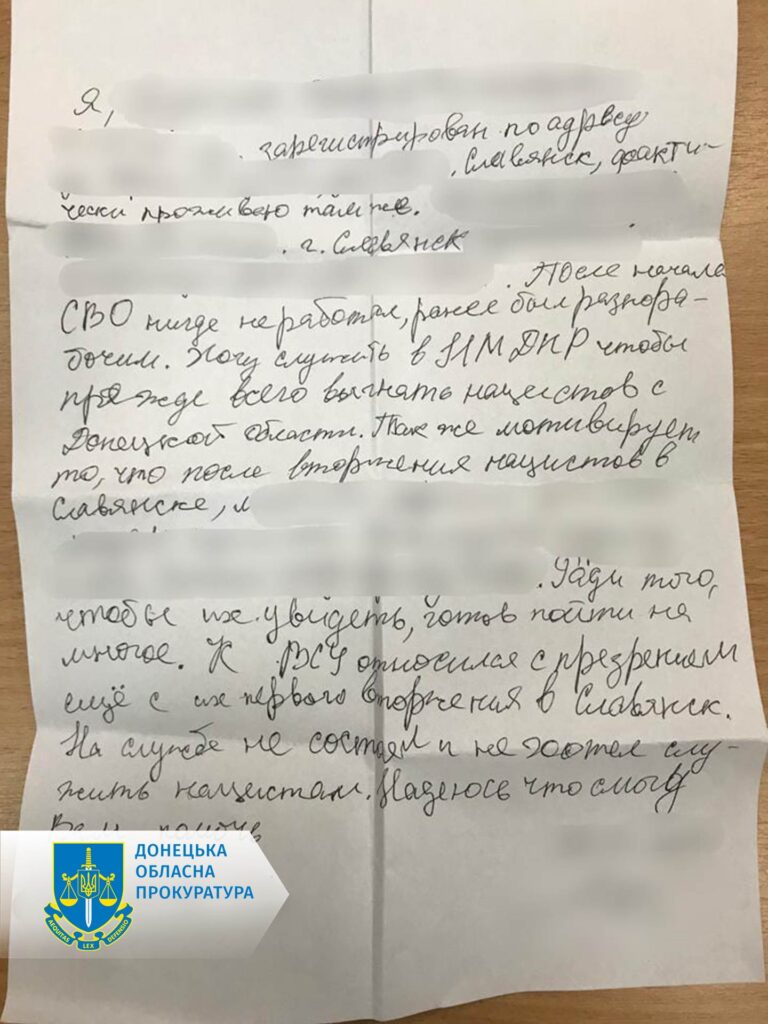 Я,
зарегистрирован по адресу
. Славянск, факти-
чески проживаю там же.
. г. Славянск
. После начала
СВО нигде не работал, ранее был разнора-
бочим. Хочу служить в НМ ДНР чтобы
прежде всего выгнать нацистов с
Донецкой области. Так же мотивирует
то, что после вторжения нацистов в
Славянске,
. Ради того,
чтобы их увидеть, готов пойти на
многое. К ВСУ относился с презрением
ещё с их первого вторжения в Славянск.
На службе не состоял и не хотел слу-
жить нацистам. Надеюсь что смогу
Вам помочь
ДОНЕЦЬКА
ОБЛАСНА
ПРОКУРАТУРА
AEQUITAS LEX DEFENSIO